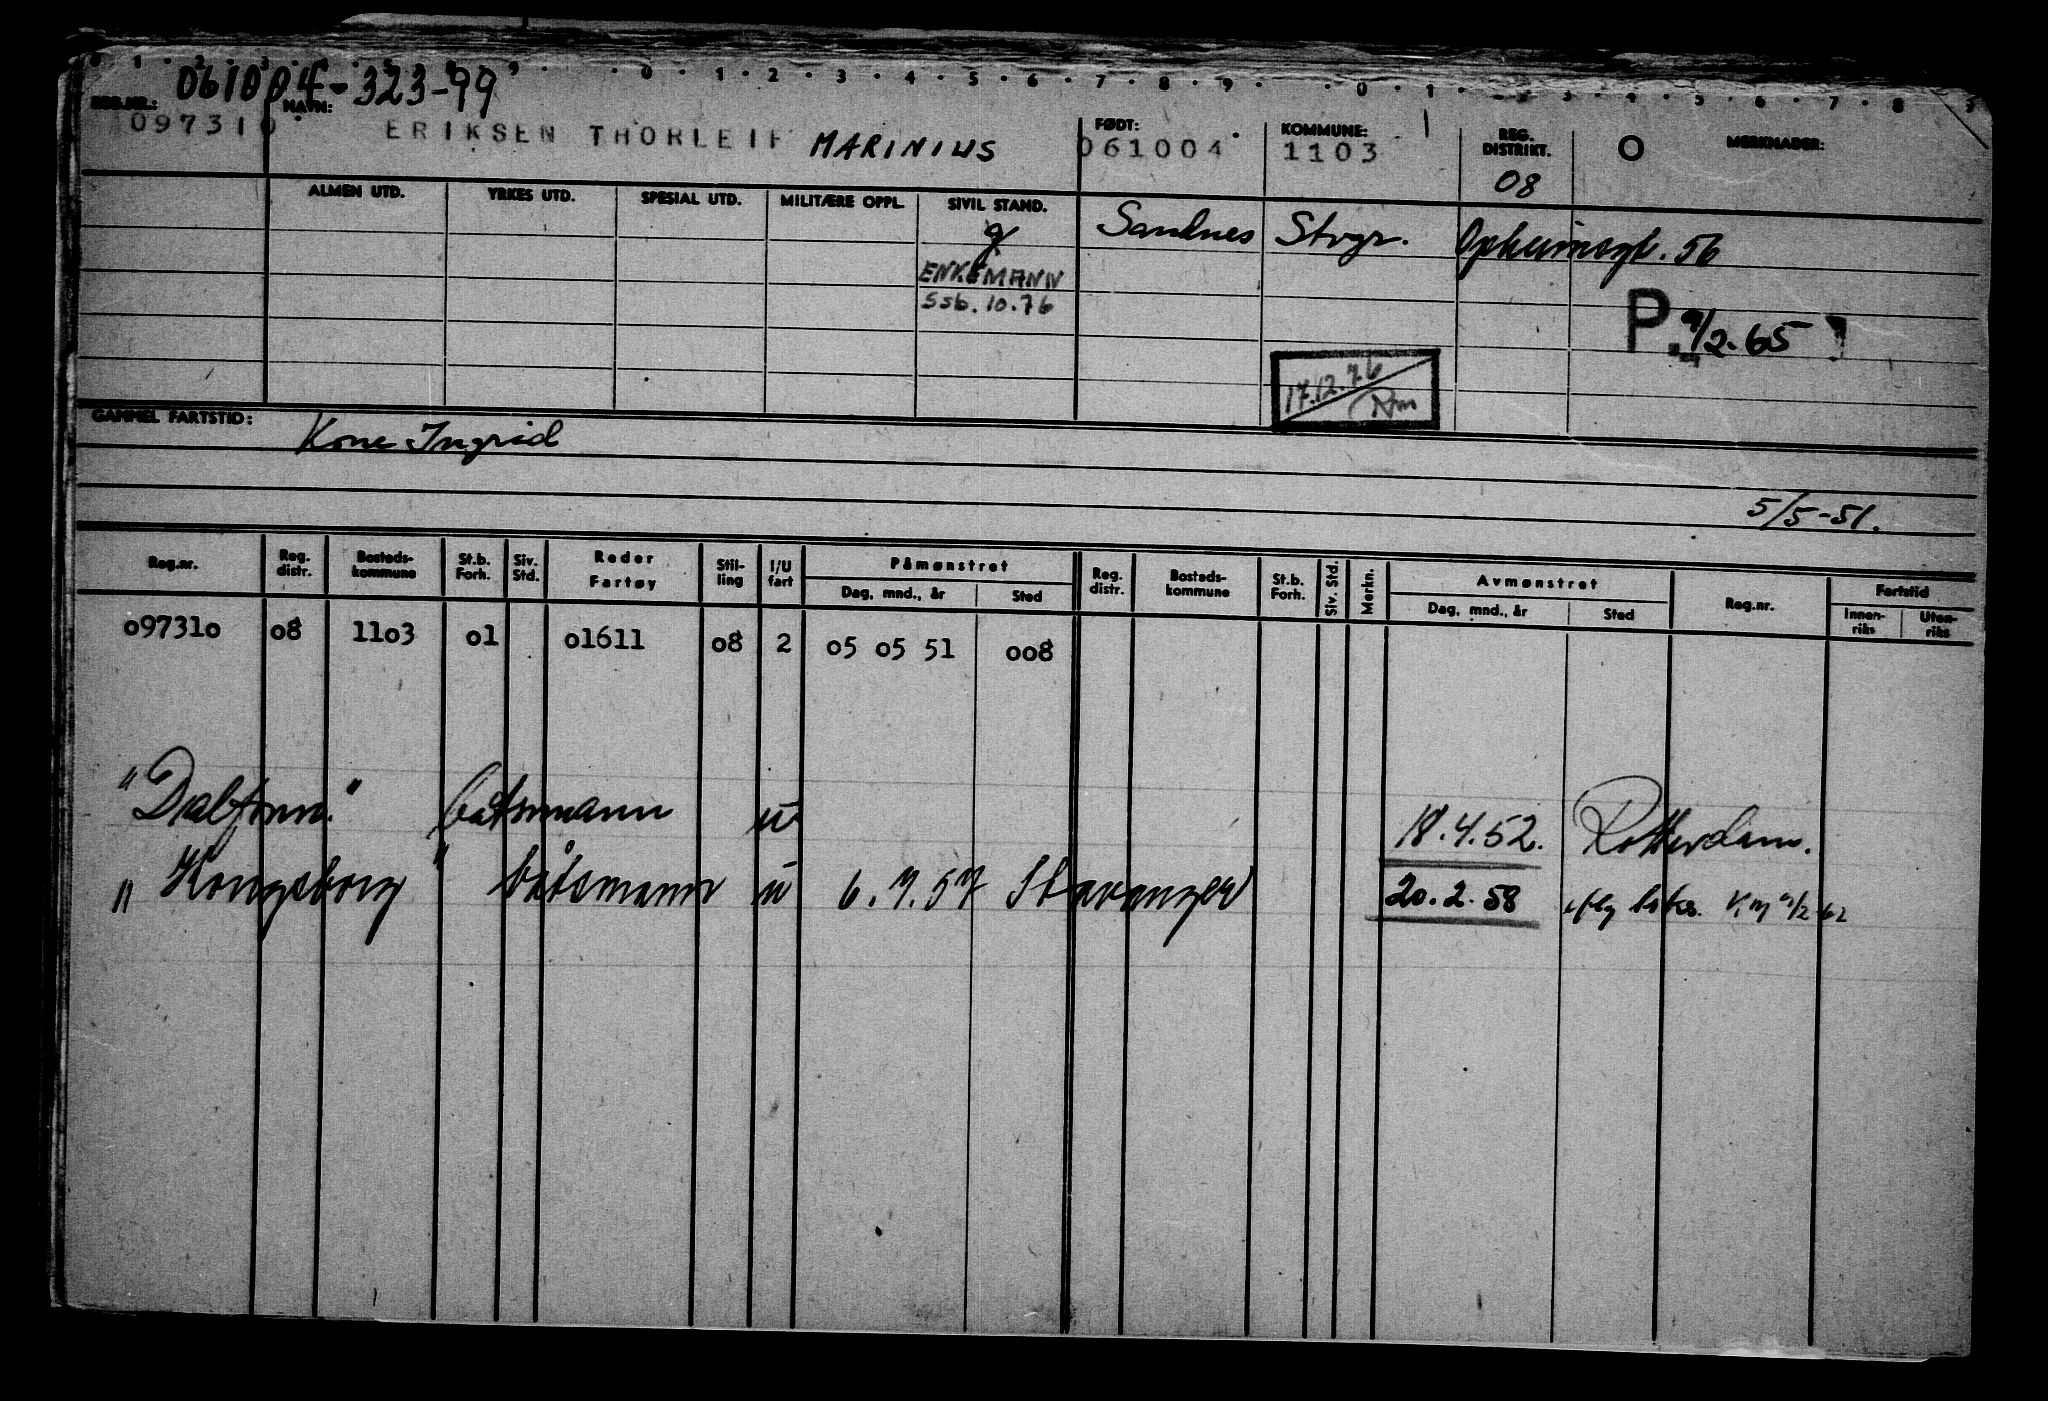 0 · 1 · 2 · 3 · · · · 9 · · 0 · 1 · 2 · 3 · 4 · 5 · 6 · 7 · 8 · 9 · · 0 · 1 · 2 · 3 · 4 · 5 · 6 · 7 · 8 · 9
061004-323-99
REG.NR.: NAVN: FØDT: KOMMUNE: REG. DISTRIKT. O MERKNADER:
097310 ERIKSEN THORLEIF MARINIUS 061004 1103 08
ALMEN UTD. YRKES UTD. SPESIAL UTD. MILITÆRE OPPL. SIVIL STAND.
g Sandnes Stvgr. Opheimsgt. 56
ENKEMANN
Ssb. 10.76
P. 9/2.65
17.12.76
GAMMEL FARTSTID:
Kone Ingrid
5/5-51.
Reg.nr. Reg. distr. Bosteds-kommune St.b. Forh. Siv. Std. Reder Fartøy Stil-ling I/U fart Påmønstret Dag, mnd., år Sted Reg. distr. Bosteds-kommune St.b. Forh. Siv. Std. Merkn. Avmønstret Dag, mnd., år Sted Reg.nr. Fartstid Innen-riks Uten-riks
097310 08 1103 01 01611 08 2 05 05 51 008
"Dalfonn." båtsmann u 18.4.52. Rotterdam.
"Kongsborg" båtsmann u 6.7.57 Stavanger 20.2.58